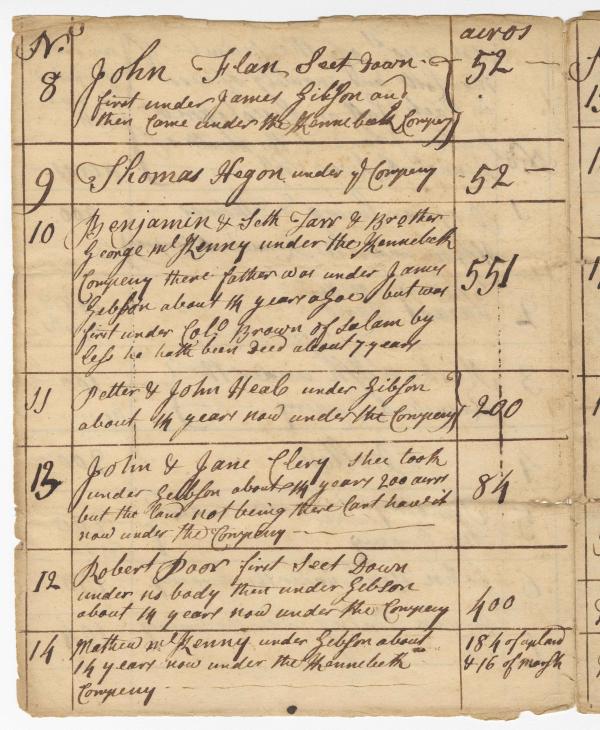 No. acres
8 John Flan Seet Down 52
first under James Gibson and
then Came under the Kennebeck Compeny
9 Thomas Hegon under ye Compeny 52
10 Benjamin & Seth Tarr & Brother
George mcKenny under the Kennebeck
Compeny there father was under James 551
Gebson about 14 years agoe but was
first under Colo Brown of Salam by
Less he hath been Deed about 7 years
11 Petter & John Heal under Gibson
about 14 years now under the Compeny 200
13 John & Jane Clery Shee took
under Gebbson about 14 years 200 acrs 84
but the land not being there Cant have it
now under the Compeny
12 Robert Poor first Seet Down
under no body then under Gebson
about 14 years now under the Compeny 400
14 Mathew mcKenny under Gebson about 184 of upland
14 years now under the Kennebeth & 16 of marsh
Compeny